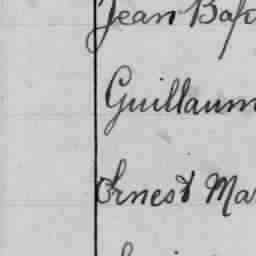 Jean Bap
Guillaum
Ernest Ma